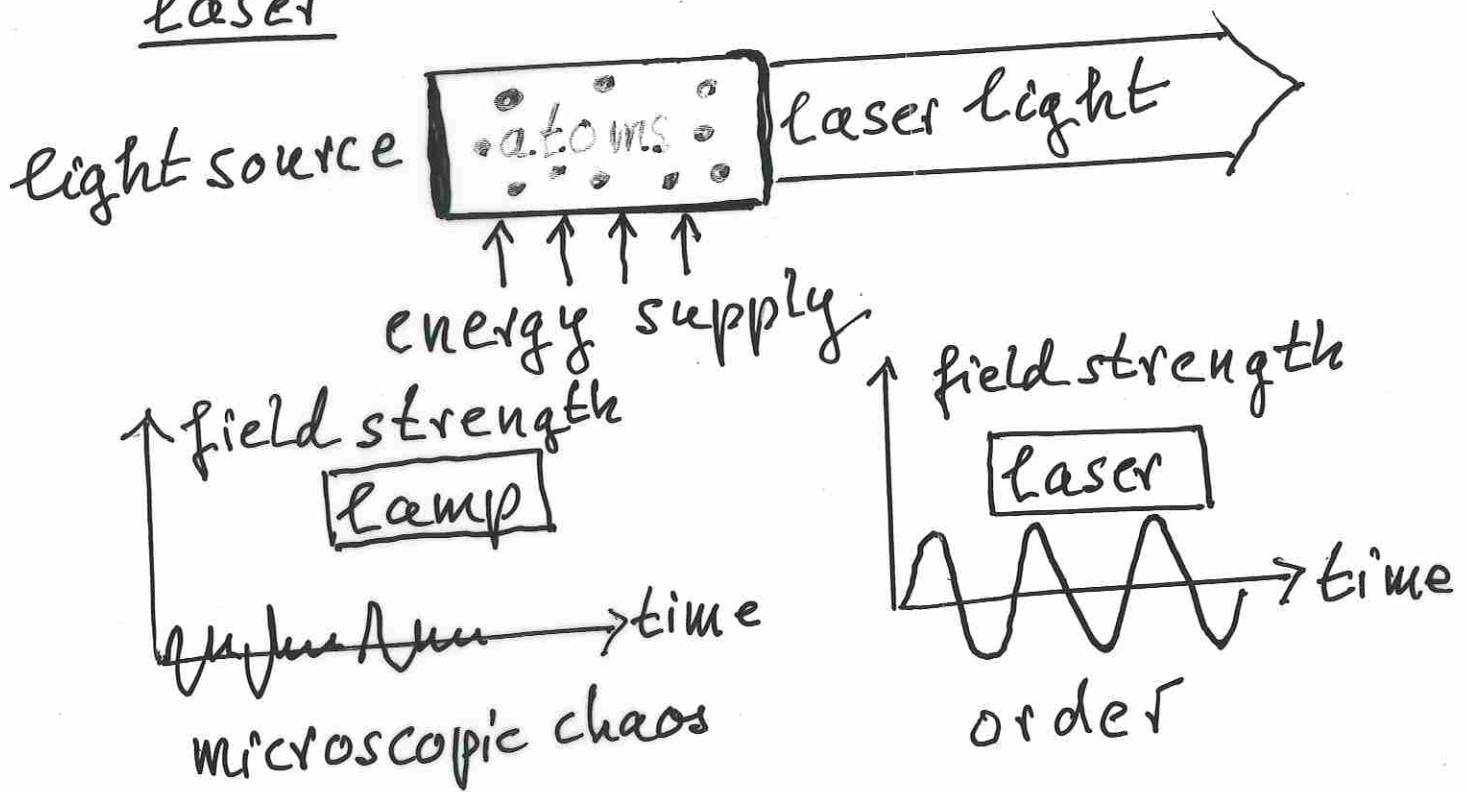 laser
light source
atoms
laser light
energy supply
field strength
lamp
time
microscopic chaos
field strength
laser
time
order